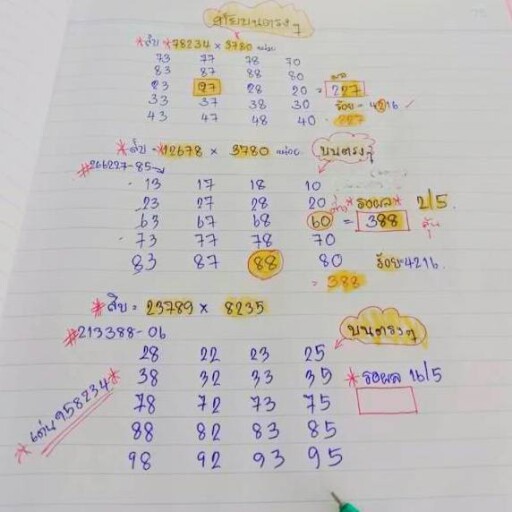 สูตรบนตรงๆ
*สิบ *78234 × 3780 หน่วย
73 77 78 70
83 87 88 80 ผล
23 27 28 20 = 227
33 37 38 30 ร้อย = 4216 ✓
43 47 48 40 = 227
*สิบ = 12678 × 3780 หน่วย บนตรงๆ
*266227-85
13 17 18 10
23 27 28 20 *รอผล* 2/5
63 67 68 60 = 388
73 77 78 70
83 87 88 80 ร้อย=4216.
= 388
*สิบ = 23789 × 8235
*213388-06 บนตรงๆ
28 22 23 25
38 32 33 35 *รอผล 16/5
78 72 73 75
88 82 83 85
98 92 93 95
*เด่น958234*